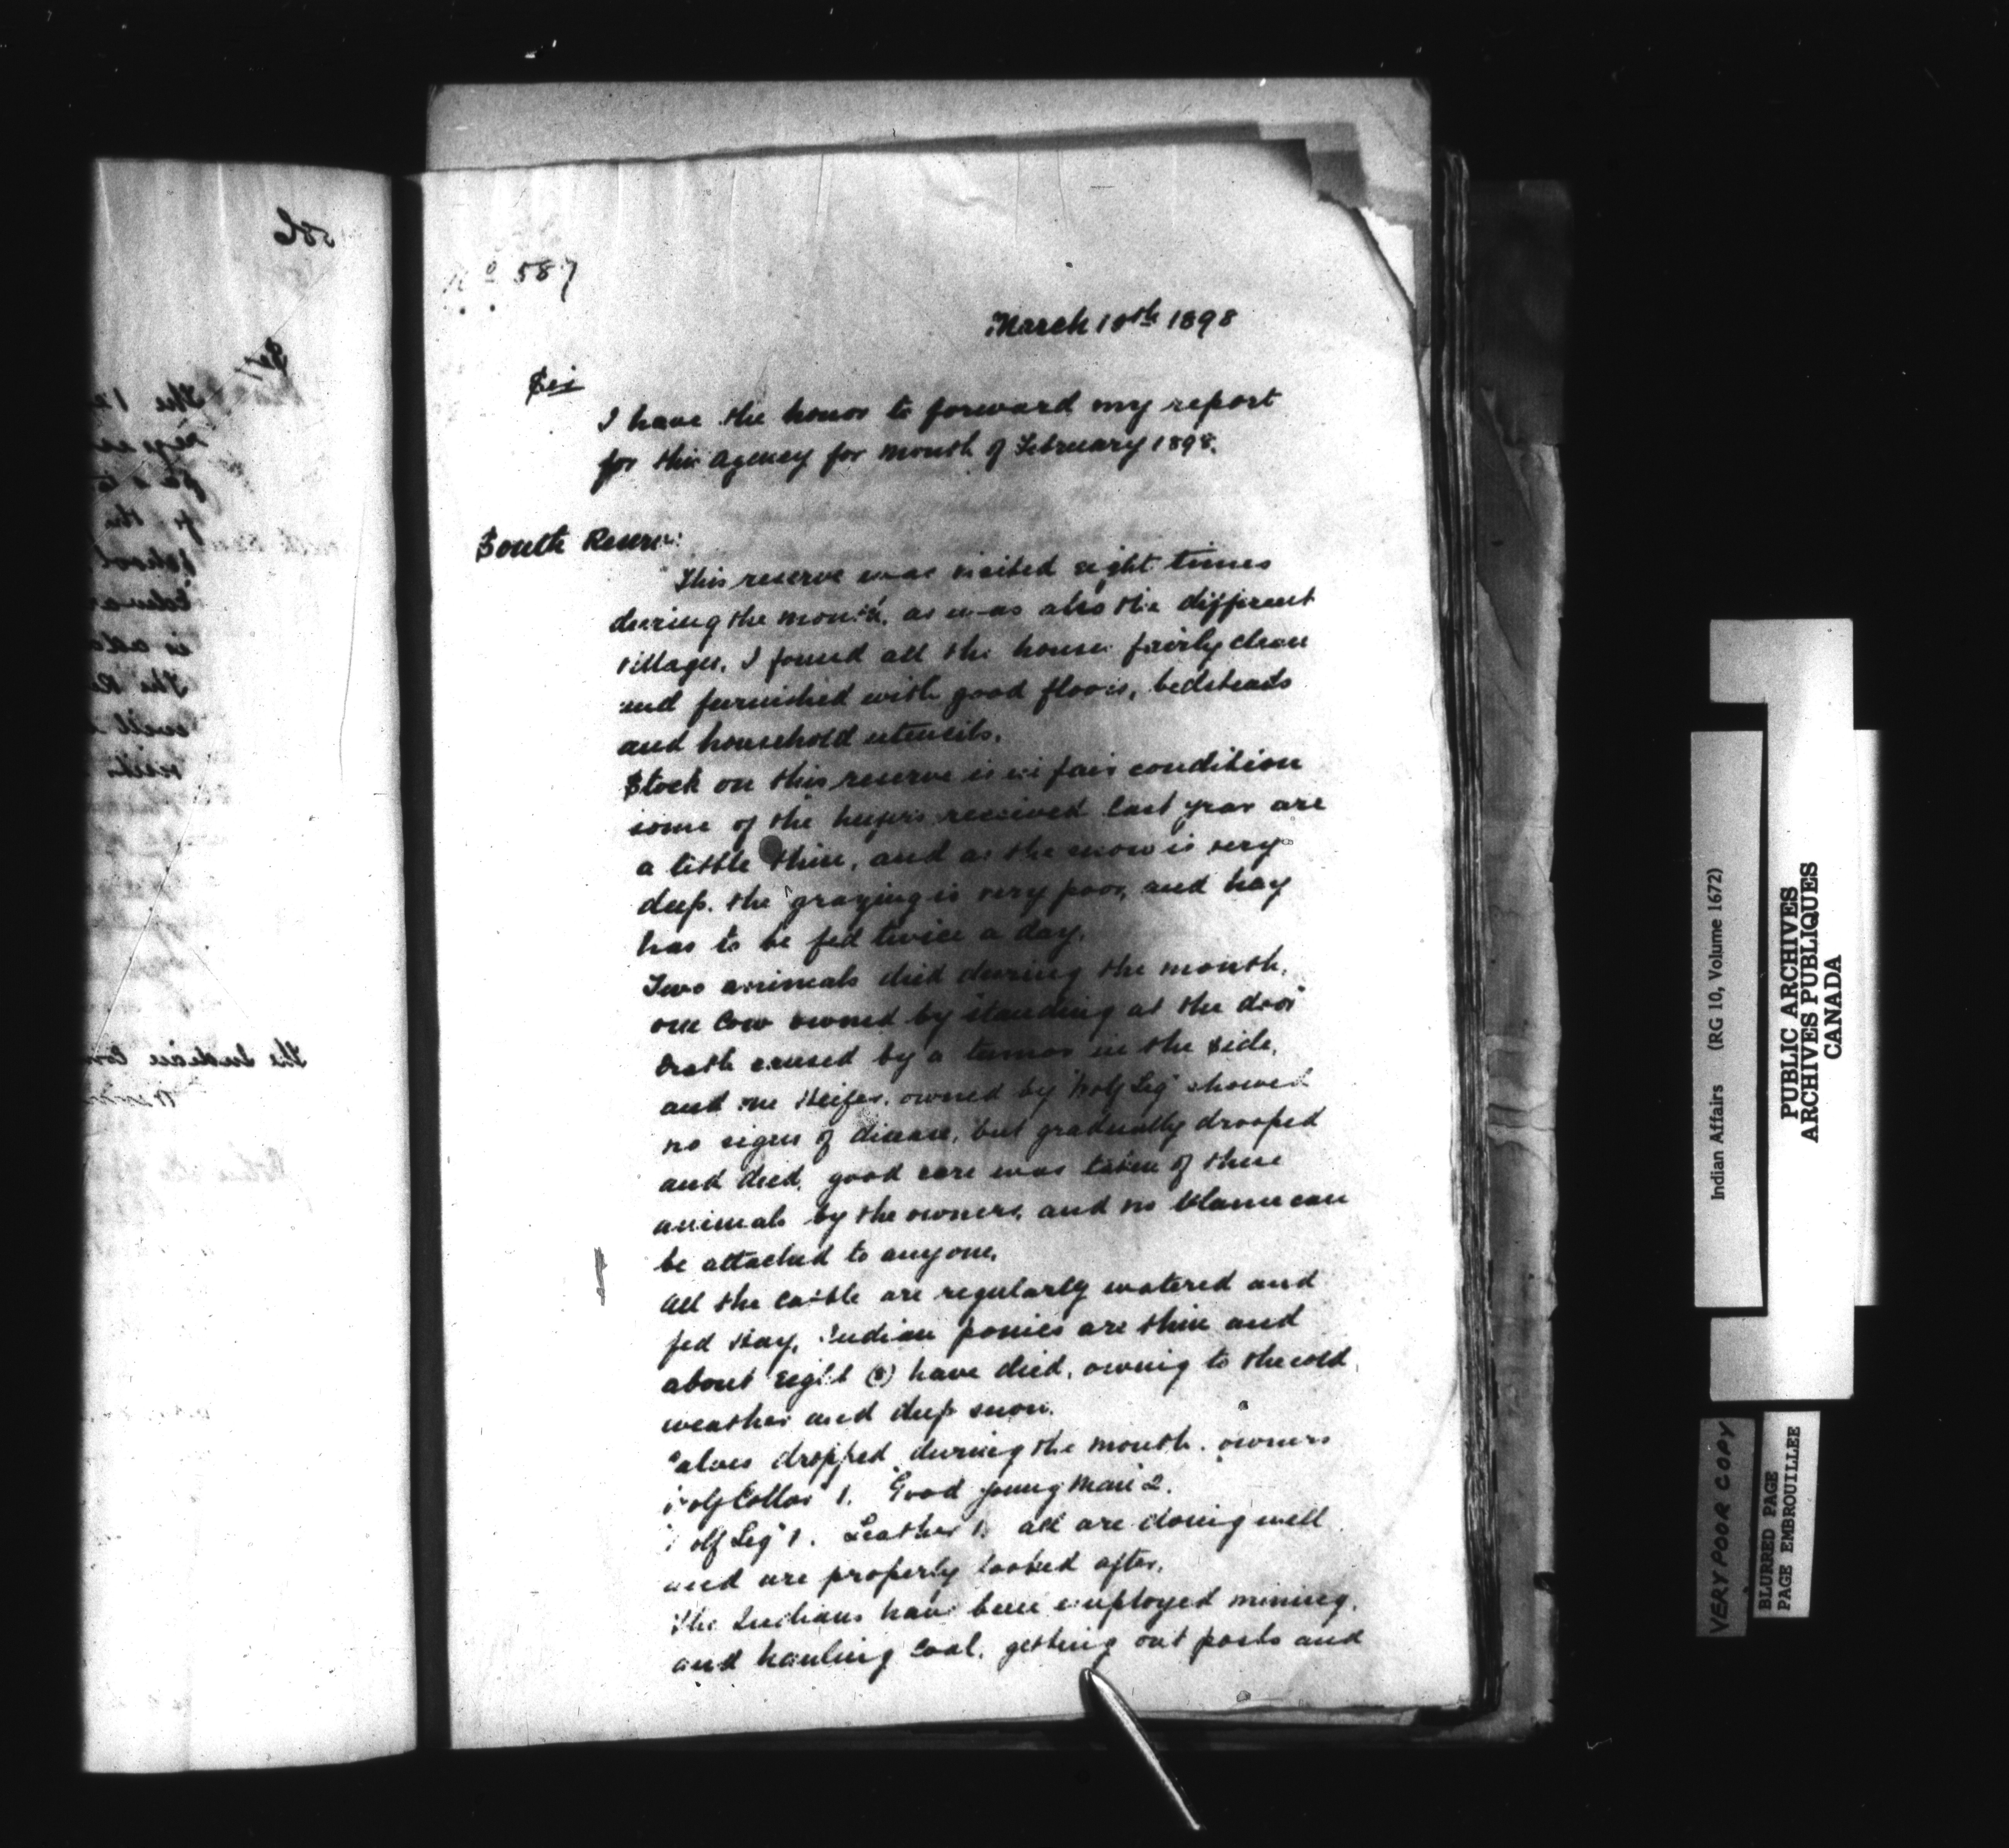 No 587
March 10th 1898
Sir
I have the honor to forward my report
for this Agency for month of February 1898.
South Reserve
This reserve was visited eight times
during the month, as was also the different
villages. I found all the house fairly clean
and furnished with good floors, bedsteads
and household utensils.
Stock on this reserve is in fair condition
some of the heifers received last year are
a little thin, and as the snow is very
deep. the grazing is very poor, and hay
has to be fed twice a day.
Two animals died during the month.
one Cow owned by standing at the door
Death caused by a tumor in the side,
and one Heifer, owned by "Wolf Leg" showed
no signs of disease, but gradually drooped
and died, good care was taken of these
animals by the owners, and no blame can
be attached to anyone.
All the Cattle are regularly watered and
fed Hay, Indian ponies are thin and
about Eight (8) have died, owing to the cold
weather and deep snow.
Calves dropped during the month. owners
Wolf Collar 1. Good young Man 2.
Wolf Leg 1. Leather 1. all are doing well
and are properly looked after.
The Indians have been employed mining,
and hauling Coal, getting out posts and
586
Sir
The Indian Com
Indian Affairs (RG 10, Volume 1672)
PUBLIC ARCHIVES
ARCHIVES PUBLIQUES
CANADA
VERY POOR COPY
BLURRED PAGE
PAGE EMBROUILLEE